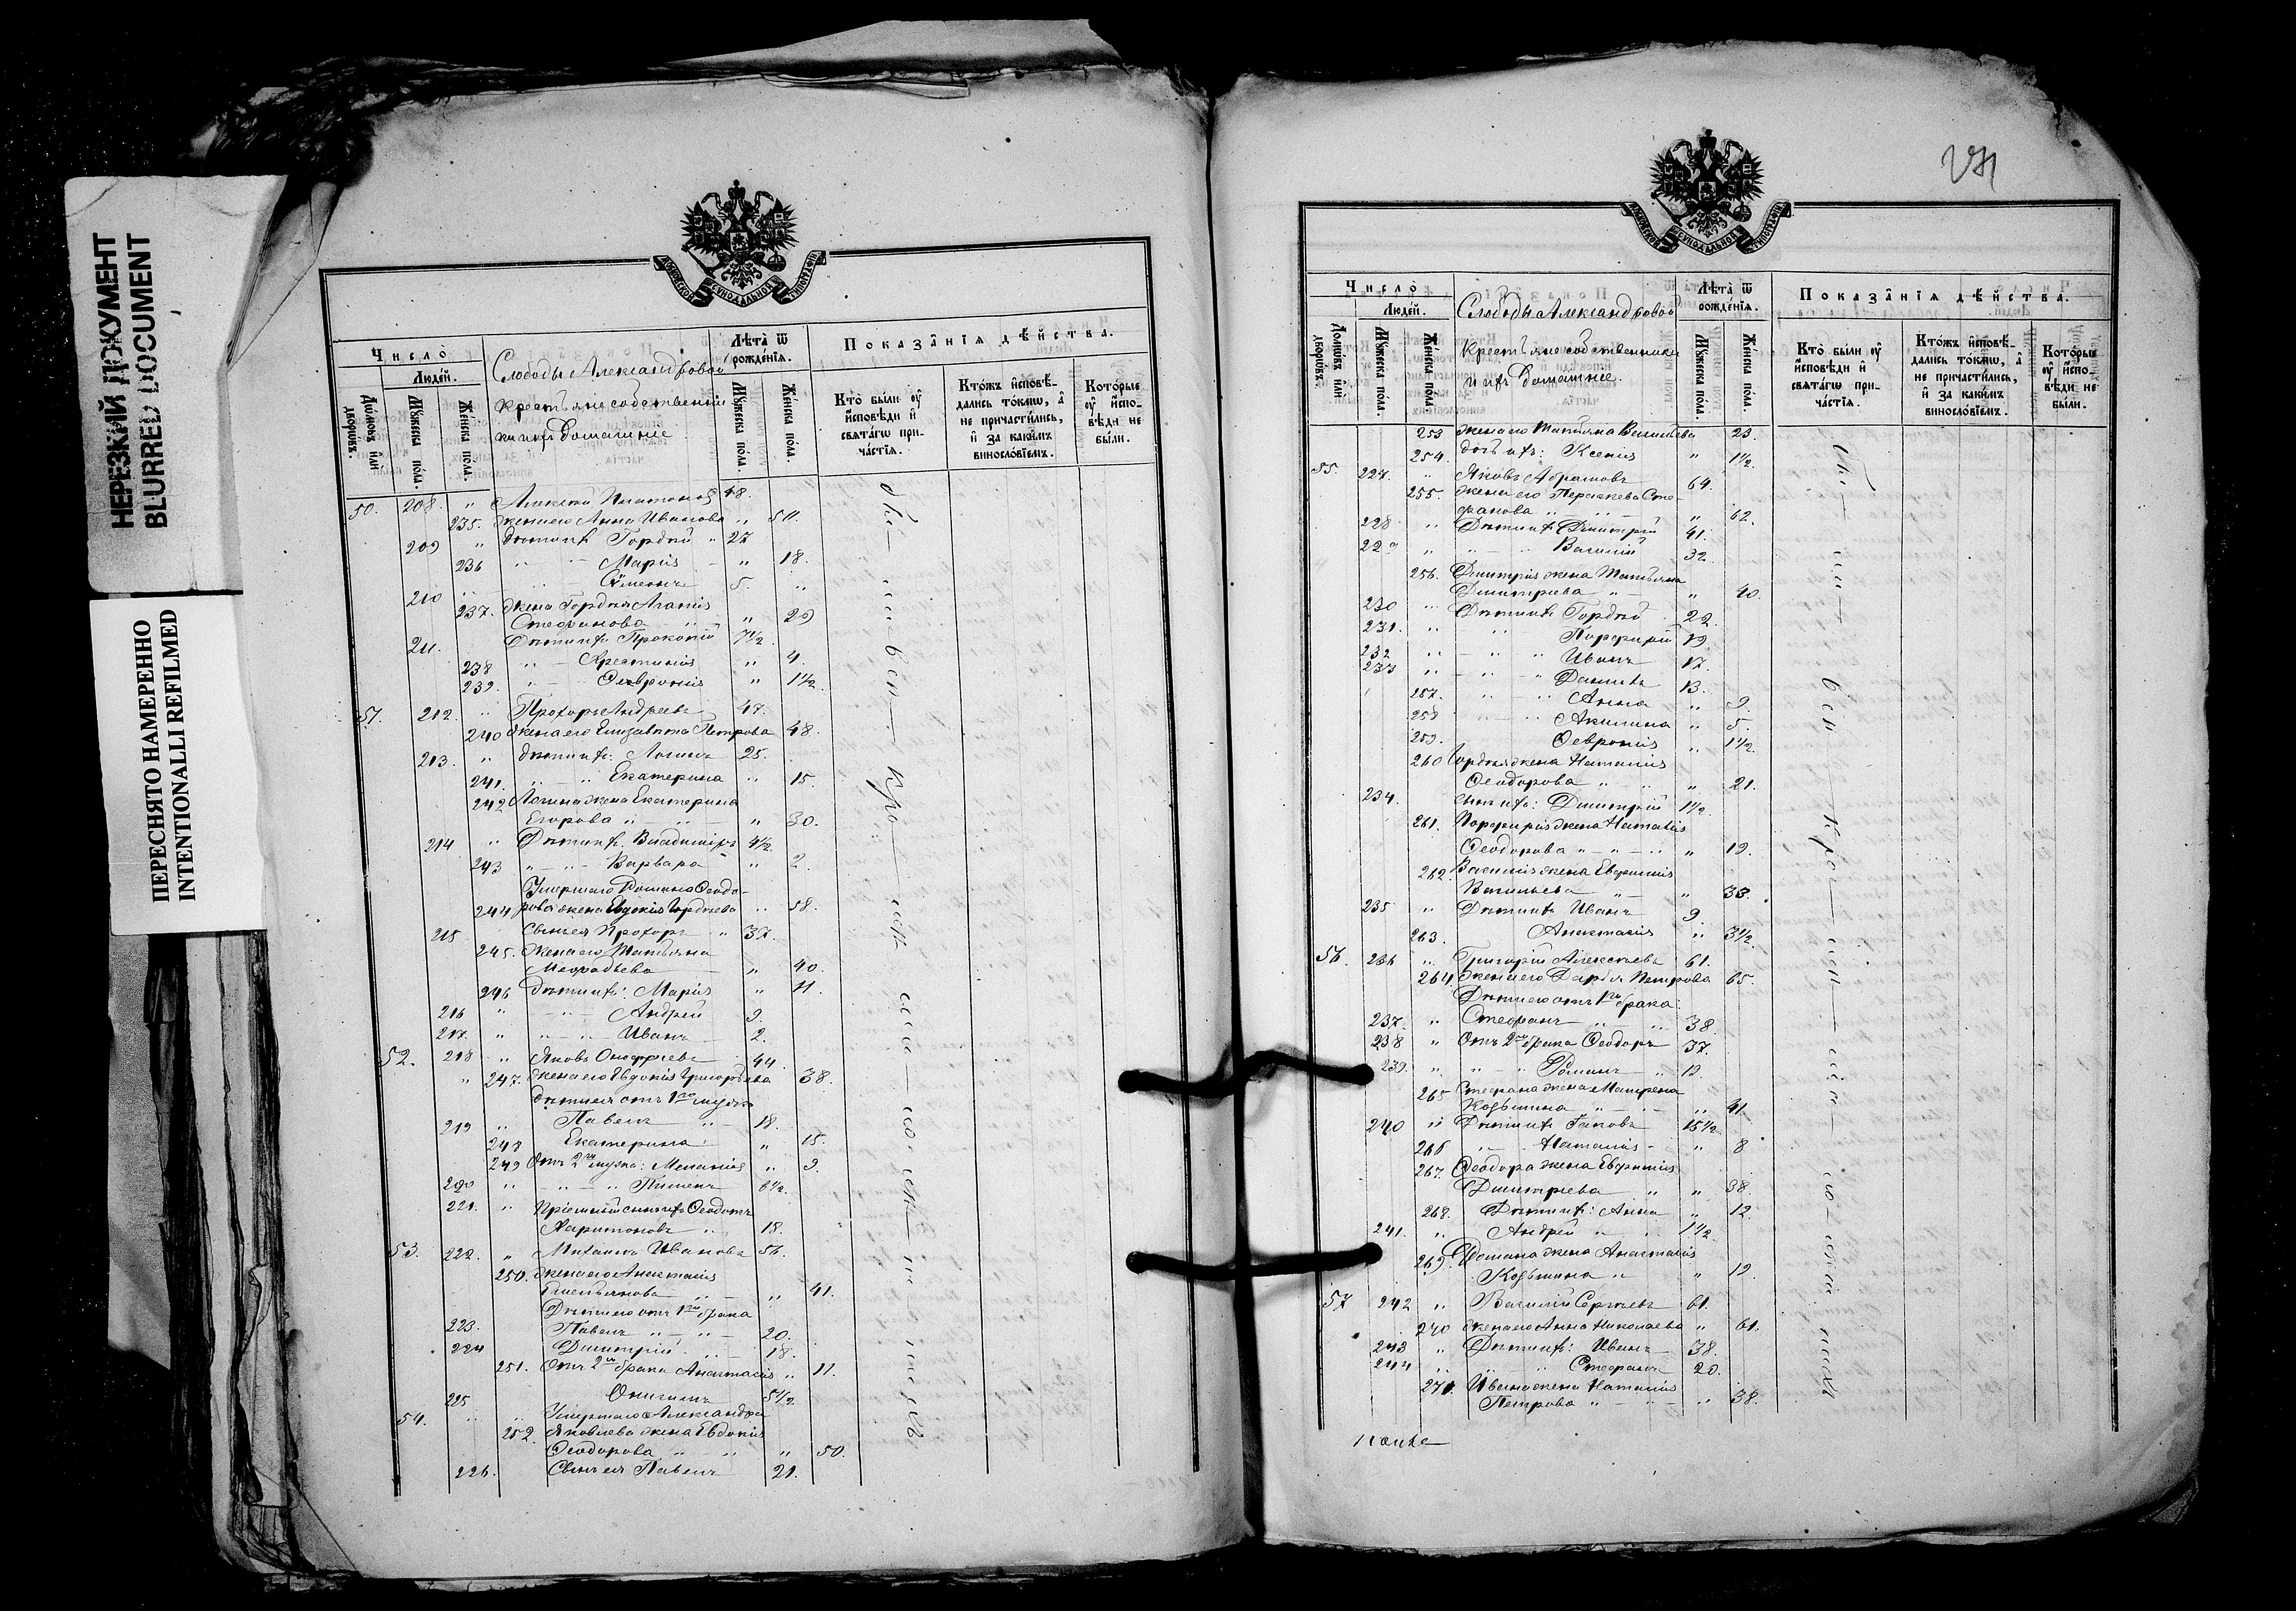 НЕРЕЗКИЙ ДОКУМЕНТ
BLURRED DOCUMENT
ПЕРЕСНЯТО НАМЕРЕННО
INTENTIONALLI REFILMED
МОСКОВСКОЙ СУНОДАЛЬНОЙ ТИПОГРАФІИ
Число̀
Людей.
Домѡвъ и҆лѝ дворѡвъ.
Мꙋ́жеска по́ла.
Же́нска по́ла.
Слободы Александровой
крестьяне собственни
ки и ихъ домашние.
Лѣ́та ѿ рожде́нїѧ.
Мꙋ́жеска по́ла.
Же́нска по́ла.
Показа̂нїѧ дѣ́йства.
Кто̀ бы́ли ᲂу҆ и҆́сповѣди и҆ свѧта́гѡ при-ча́стїѧ.
Кто́жъ и҆сповѣ́-дались то́кмѡ, а҆ не причасти́лись, и҆ за каки́мъ винословїемъ.
Кото́рые ᲂу҆ и҆спо-вѣди не бы́ли.
50. 208. " Алексѣй Платоновъ 48.
235. жена его Анна Иванова " 50.
209 " Дѣти ихъ Гордѣй " 27
236 " Марія " 18.
210 Сѵмеонъ 5. "
237. Жена Гордѣя Агафія
Стефанова " 29
211. Дѣти ихъ Прокопій 7½
238 " Христинія " 4.
239. " Февронія " 1½
51. 212. " Прохоръ Андреевъ 47.
240 жена его Елизавета Петрова 48.
213. " Дѣти ихъ: Логинъ 25.
241. " Екатерина " 15.
242 Логина жена Екатерина
Егорова " 30.
214 " Дѣти ихъ Владиміръ 4½
243 " Варвара " 2.
Умершаго Романа Ѳеодо-
244 рова жена Евдокія Гордѣева " 58.
215 Сынъ ея Прохоръ " 37.
245. Жена его Татьяна
Мефодьева " 40.
246 Дѣти ихъ: Марія " 11.
216 " Андрей 9.
217. " Иванъ 2.
52. 218 " Яковъ Онуфріевъ 44.
" 247. Жена его Евдокія Григорьева 38.
Дѣти ея отъ 1го мужа
219 " Павелъ " 18.
248 Екатерина " 15.
249 Отъ 2го мужа: Меланія " 9.
220 " Пименъ 6½.
221. " Пріемный сынъ ихъ Ѳеодотъ
Харитоновъ " 18.
53. 222. " Михаилъ Ивановъ 56.
250. Жена его Анастасія
Емельянова " 41.
Дѣти его отъ 1го брака
223. Павелъ " 20.
224 Димитрій " 18.
251. Отъ 2го брака Анастасія " 11.
225 Онисимъ 5½
54. " Умершаго Александра
252. Яковлева жена Евдокія
Ѳеодорова " 50.
226. Сынъ ея Павелъ 21.
МОСКОВСКОЙ СУНОДАЛЬНОЙ ТИПОГРАФІИ
Число̀
Людей.
Домѡвъ и҆лѝ дворѡвъ.
Мꙋ́жеска по́ла.
Же́нска по́ла.
Слободы Александровой
крестьяне собственники
и ихъ домашние.
Лѣ́та ѿ рожде́нїѧ.
Мꙋ́жеска по́ла.
Же́нска по́ла.
Показа̂нїѧ дѣ́йства.
Кто̀ бы́ли ᲂу҆ и҆́сповѣди и҆ свѧта́гѡ при-ча́стїѧ.
Кто́жъ и҆сповѣ́-дались то́кмѡ, а҆ не причасти́лись, и҆ за каки́мъ винословїемъ.
Кото́рые ᲂу҆ и҆спо-вѣди не бы́ли.
253 жена его Татьяна Васильева 23.
254. дочь ихъ: Ксенія " 1½.
55. 227. " Яковъ Абрамовъ 64.
255. жена его Параскева Сте-
фанова " 62.
228 " Дѣти ихъ Димитрій 41.
229 " Василій 32.
256. Димитрія жена Татьяна
Димитріева " 40.
230 " Дѣти ихъ Гордѣй 22.
231. " Порфирій 19.
232 " Иванъ 17.
233 " Даніилъ 13.
257. " Анна " 9.
258 " Акилина " 5.
259. Февронія " 1½.
260 Гордѣя жена Наталія
Ѳеодорова " 21.
234. Сынъ ихъ: Димитрій 1½.
261. Порфирія жена Наталія
Ѳеодорова " 19.
262. Василія жена Евфимія
Васильева " 33.
235 " Дѣти ихъ Иванъ 9.
263. Анастасія " 3½.
56. 236 " Григорій Алексѣевъ 61.
264. жена его Дарья Петрова 65.
Дѣти его отъ 1го брака:
237. " Стефанъ " 38.
238 " Отъ 2го брака Ѳеодоръ 37.
239. " Романъ " 19.
265 Стефана жена Матрена
Козьмина " 41.
240 " Дѣти ихъ Іаковъ 15½
266 " Наталія " 8
267. Ѳеодора жена Евфимія
Димитріева " 38.
268. Дѣти ихъ: Анна " 12.
241. " Андрей " 1½
269. Романа жена Анастасія
Козьмина " 19.
57 242 " Василій Сергѣевъ 61.
270 жена его Анна Николаева " 61.
243 " Дѣти ихъ: Иванъ 38.
244 " Стефанъ 20.
271. Ивана жена Наталія
Петрова " 38.